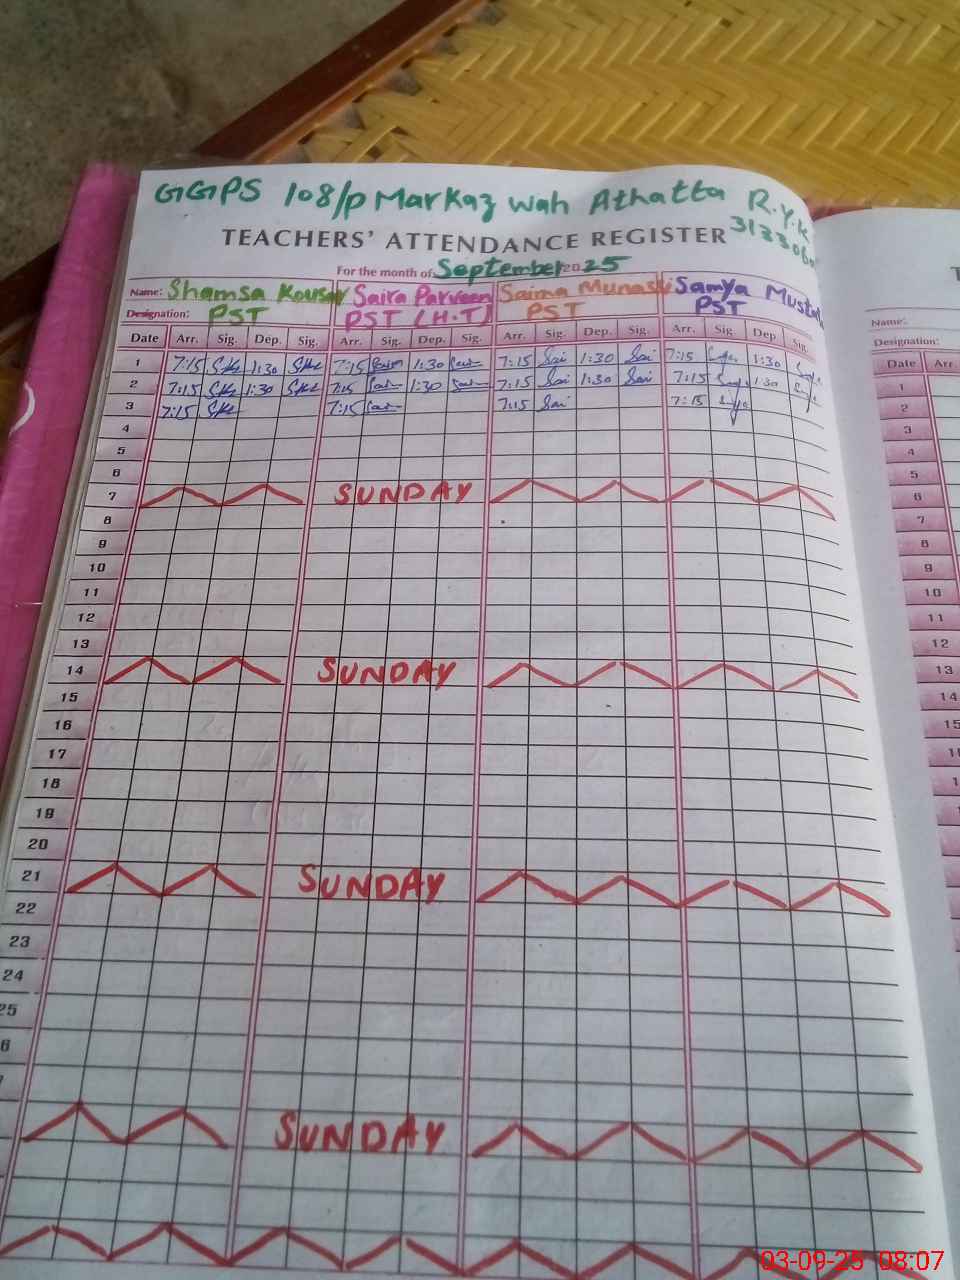 GGPS 108/P Markaz wah Athatta R.Y.K
TEACHERS' ATTENDANCE REGISTER
For the month of September 2025
Name: Shamsa Kousar Saira Parveen Saima Samya
Designation: PST PST (H.T) PST PST
Date Arr. Sig. Dep. Sig. Arr. Sig. Dep. Sig. Arr. Sig. Dep. Sig. Arr. Sig. Dep. Sig.
1 7:15 1:30 7:15 1:30 7:15 Sai 1:30 Sai 7:15 1:30
2 7:15 1:30 7:15 1:30 7:15 Sai 1:30 Sai 7:15 1:30
3 7:15 7:15 7:15 Sai 7:15
4
5
6
7 SUNDAY
8
9
10
11
12
13
14 SUNDAY
15
16
17
18
19
20
21 SUNDAY
22
23
24
25
6
SUNDAY
Name:
Designation:
Date Arr
1
2
3
4
5
6
7
8
9
10
11
12
13
14
15
03-09-25 08:07